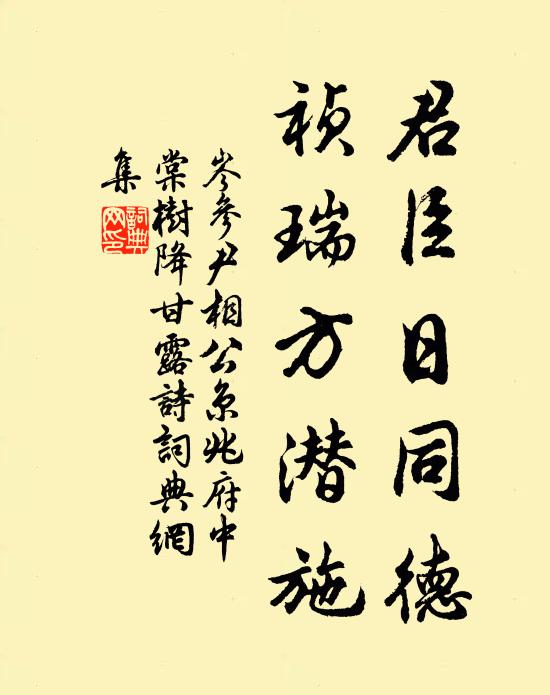 君臣日同德
祯瑞方潜施
岑參尹相公京兆府中
棠樹降甘露詩詞典網
集
詞典
网印